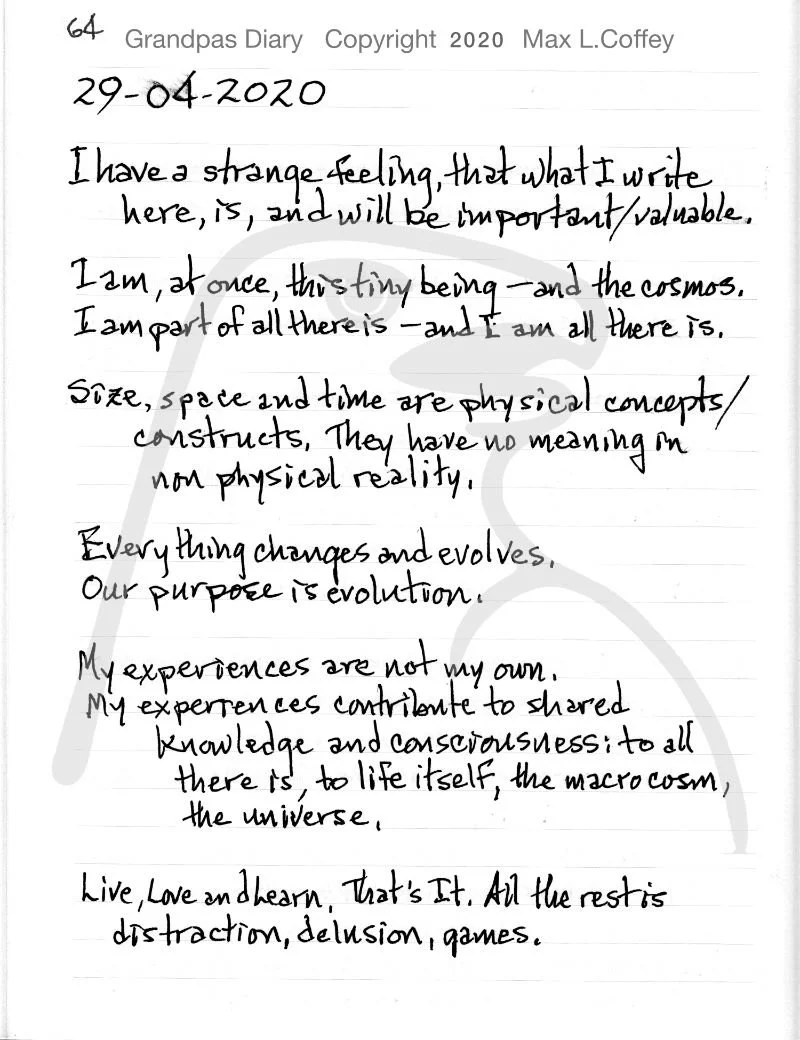 64 Grandpas Diary Copyright 2020 Max L.Coffey
29-04-2020
I have a strange feeling, that what I write
here, is, and will be important/valuable.
I am, at once, this tiny being – and the cosmos.
I am part of all there is – and I am all there is.
Size, space and time are physical concepts/
constructs. They have no meaning in
non physical reality.
Everything changes and evolves.
Our purpose is evolution.
My experiences are not my own.
My experiences contribute to shared
knowledge and consciousness: to all
there is, to life itself, the macrocosm,
the universe.
Live, Love and Learn. That's It. All the rest is
distraction, delusion, games.